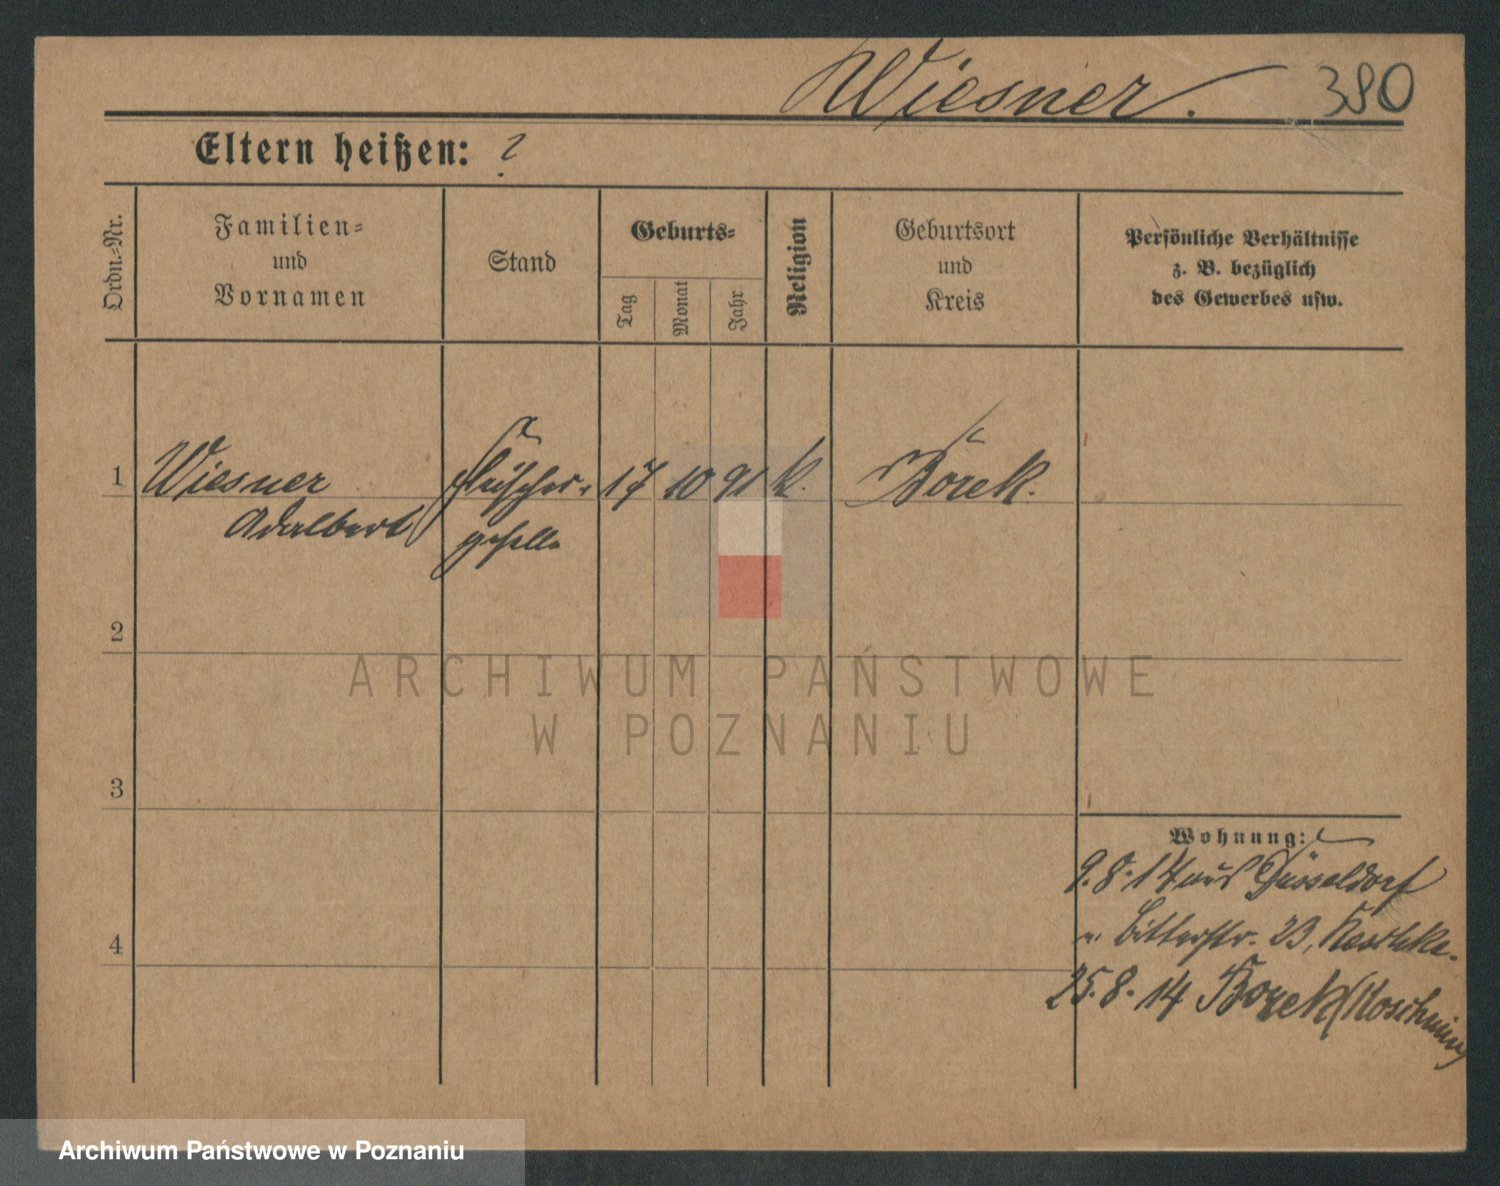 Wiesner. 380
Eltern heißen: ?
Ordn.-Nr.
Familien-
und
Vornamen
Stand
Geburts-
Tag
Monat
Jahr
Religion
Geburtsort
und
Kreis
Persönliche Verhältnisse
z. B. bezüglich
des Gewerbes usw.
1 Wiesner Fleischer- 17 10 91 k. Borek.
Adalbert geselle
2
3
4
Wohnung:
9.8.14 aus Düsseldorf
Bitterstr. 23,
25.8.14 Borek (Koschmin)
ARCHIWUM PAŃSTWOWE
W POZNANIU
Archiwum Państwowe w Poznaniu